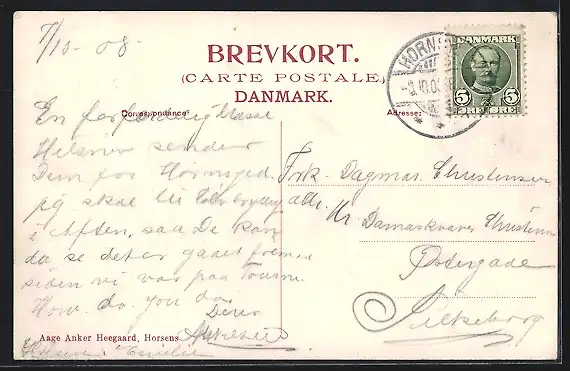 7/10-08.
BREVKORT.
(CARTE POSTALE)
DANMARK.
Correspondance
Adresse:
HORN
DANMARK
5 5
ØRE ØRE
En
Hilsen sender
Dem fra Hornsyld.
jeg skal til
i Aften, saa De kan
da se det er gaaet frem
siden vi var paa Tourne.
How do you do
Deres
Frk. Dagmar Christensen
adr. Hr. Damaskvæver Christensen
Østergade
Silkeborg
Aage Anker Heegaard, Horsens
Hilsen Emilie